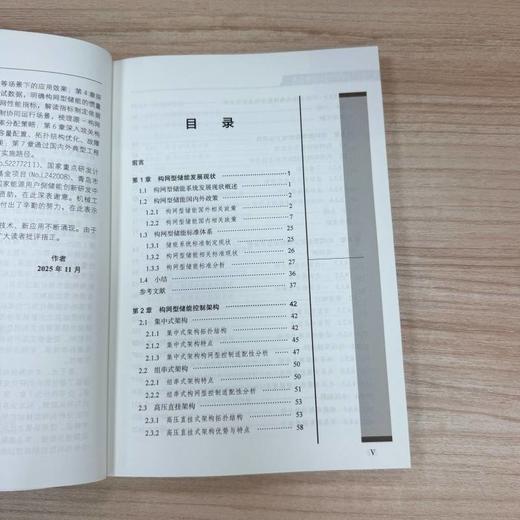 等场景下的应用效果；第4章探
试数据，明确构网型储能的惯量
网性能指标，解读指标制定依据
制协同运行场景，梳理跟—构网
率分配策略；第6章深入攻关构
容量配置、拓扑结构优化、故障
；第7章通过国内外典型工程
实施路径。
No.52277211）、国家重点研发计
基金项目（No.L242008）、青岛市
国家能源用户侧储能创新研发中
资助，在此深表谢意。机械工
付出了辛勤的努力，在此表示
技术、新应用不断涌现。由于
广大读者批评指正。
作者
2025年11月
目 录
前言
第1章 构网型储能发展现状 1
1.1 构网型储能系统发展现状概述 1
1.2 构网型储能国内外政策 2
1.2.1 构网型储能国外相关政策 2
1.2.2 构网型储能国内相关政策 7
1.3 构网型储能标准体系 25
1.3.1 储能系统标准制定现状 25
1.3.2 构网型储能相关标准现状 26
1.3.3 构网型储能标准分析 27
1.4 小结 36
参考文献 37
第2章 构网型储能控制架构 42
2.1 集中式架构 42
2.1.1 集中式架构拓扑结构 42
2.1.2 集中式架构特点 45
2.1.3 集中式架构构网型控制适配性分析 47
2.2 组串式架构 50
2.2.1 组串式架构特点 50
2.2.2 组串式构网型控制适配性分析 51
2.3 高压直挂架构 53
2.3.1 高压直挂式架构拓扑结构 53
2.3.2 高压直挂式架构优势与特点 58
V